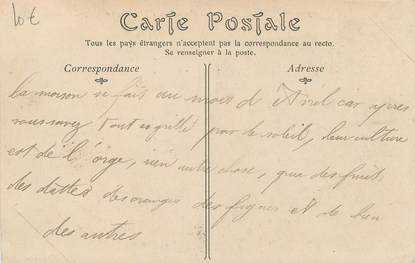 10 €
Carte Postale
Tous les pays étrangers n'acceptent pas la correspondance au recto.
Se renseigner à la poste.
Correspondance
Adresse
la moison se fait un mois d'Avril car après
vous savez tout est grillé par le soleil, leur culture
est de l'orge, rien autre chose, que des fruits
des dattes des oranges des figues et de bien
des autres